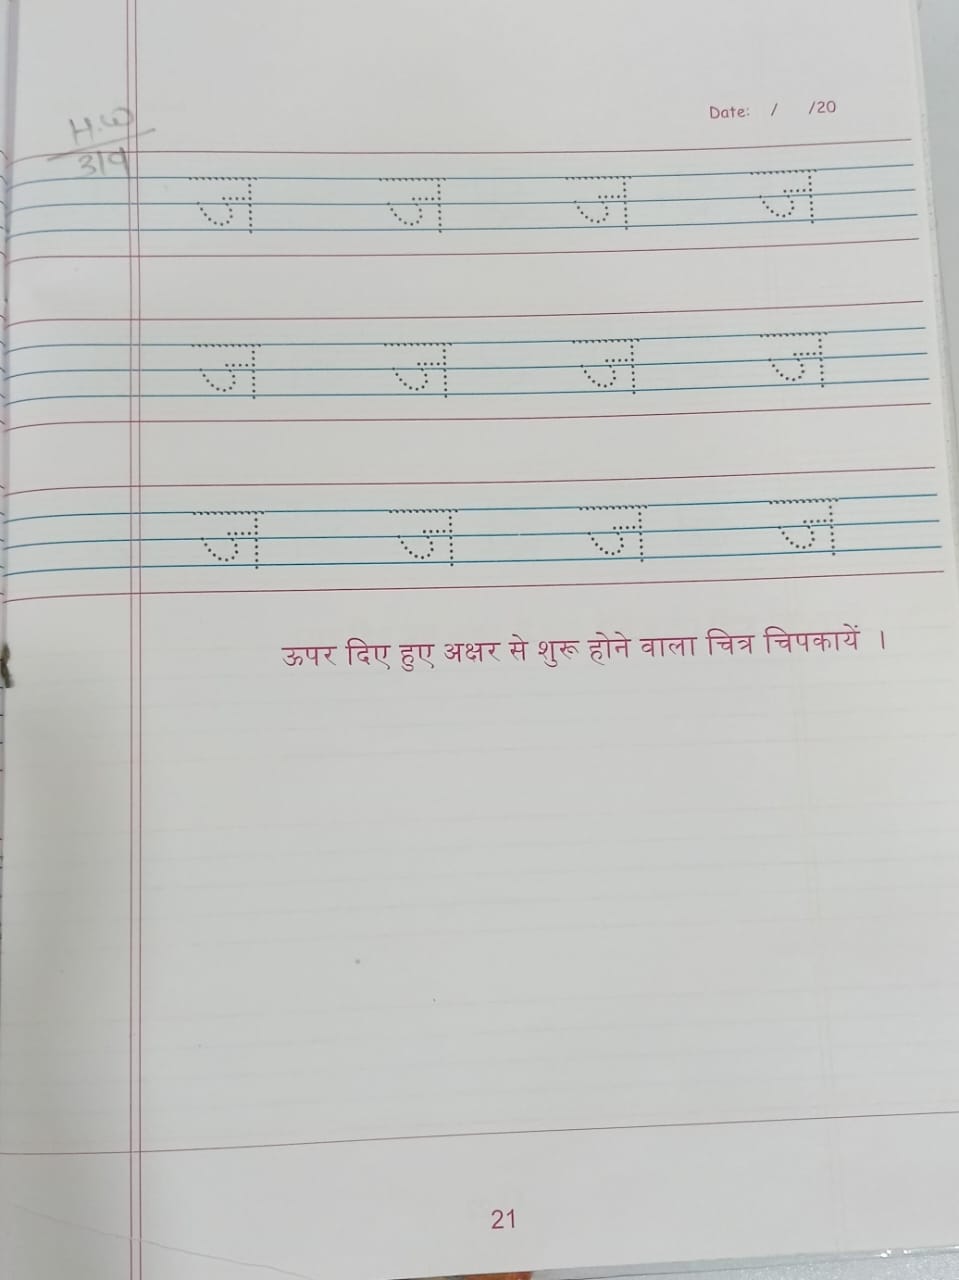 Date: / /20
H.W
3/9
ज ज ज ज
ज ज ज ज
ज ज ज ज
ऊपर दिए हुए अक्षर से शुरू होने वाला चित्र चिपकायें ।
21